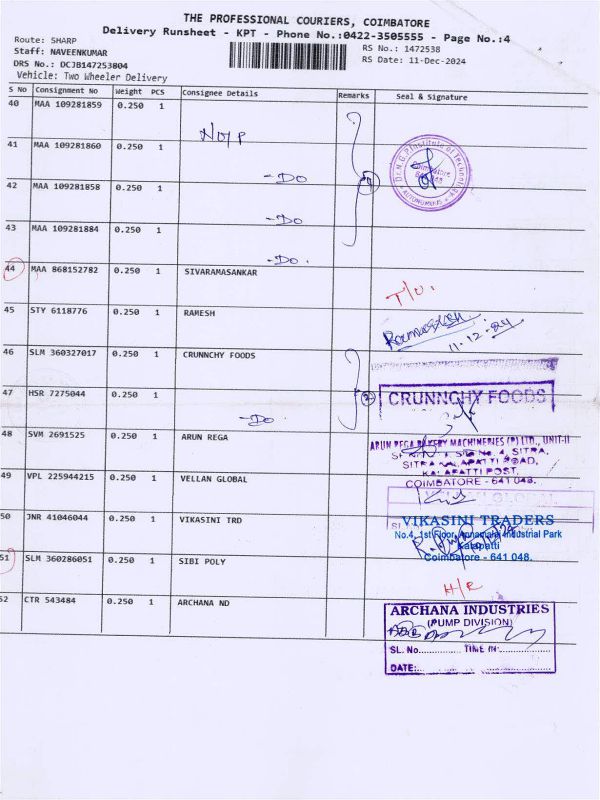 THE PROFESSIONAL COURIERS, COIMBATORE
Delivery Runsheet - KPT - Phone No.:0422-3505555 - Page No.:4
Route: SHARP
Staff: NAVEENKUMAR
DRS No.: DCJB147253804
Vehicle: Two Wheeler Delivery
RS No.: 1472538
RS Date: 11-Dec-2024
S No Consignment No Weight PCS Consignee Details Remarks Seal & Signature
40 MAA 109281859 0.250 1
41 MAA 109281860 0.250 1
-Do
42 MAA 109281858 0.250 1
-Do
43 MAA 109281884 0.250 1
-Do.
Dr. N.G.P Institute of Technology
Coimbatore
AUTONOMOUS
44 MAA 868152782 0.250 1 SIVARAMASANKAR
T/U.
45 STY 6118776 0.250 1 RAMESH
11.12.24
46 SLM 360327017 0.250 1 CRUNNCHY FOODS
CRUNNCHY FOODS
47 HSR 7275044 0.250 1
-Do
48 SVM 2691525 0.250 1 ARUN REGA
ARUN REGA BAKERY MACHINERIES (P) LTD., UNIT-II
SITRA KALAPATTI ROAD,
KALAPATTI POST,
COIMBATORE - 641 048.
49 VPL 225944215 0.250 1 VELLAN GLOBAL
50 JNR 41046044 0.250 1 VIKASINI TRD
VIKASINI TRADERS
No.4, 1st Floor, Annamalai Industrial Park
Kalapatti
Coimbatore - 641 048.
51 SLM 360286051 0.250 1 SIBI POLY
H/R
52 CTR 543484 0.250 1 ARCHANA ND
ARCHANA INDUSTRIES
(PUMP DIVISION)
SL. No.............. TIME IN:..............
DATE:..............